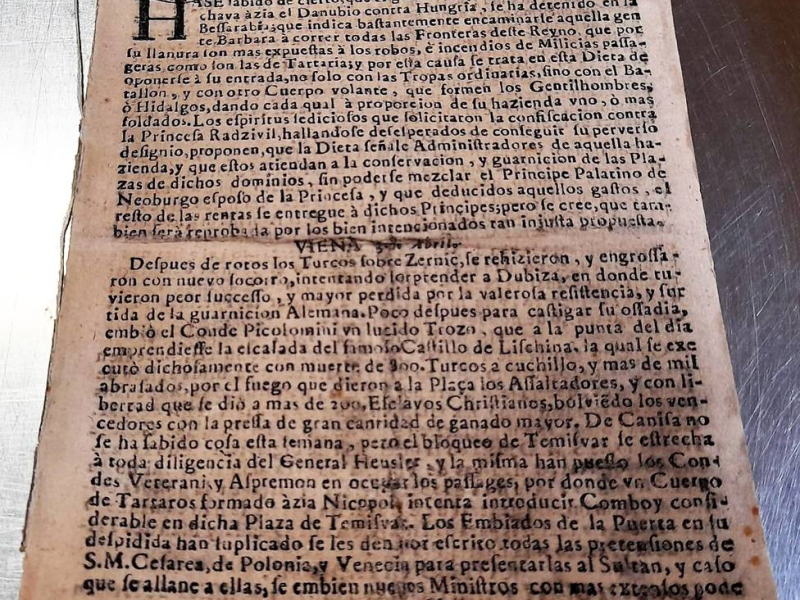 HASE sabido de cierto, que
chava àzia el Danubio contra Hungria, se ha detenido en la
Bessarabia; que indica bastantemente encaminarse aquella gen
te Barbara à correr todas las Fronteras deste Reyno, que por
su llanura son mas expuestas à los robos, è incendios de Milicias passa-
geras como son las de Tartaria; y por esta causa se trata en esta Dieta de
oponerse à su entrada, no solo con las Tropas ordinarias, sino con el Ba-
tallon, y con otro Cuerpo volante, que formen los Gentilhombres,
ò Hidalgos, dando cada qual à proporcion de su hazienda vno, ò mas
soldados. Los espiritus sediciosos que solicitaron la confiscacion contra
la Princesa Radzivil, hallandose desesperados de conseguir su perverso
designio, proponen, que la Dieta señale Administradores de aquella ha-
zienda, y que estos atiendan a la conservacion, y guarnicion de las Pla-
zas de dichos dominios, sin poderse mezclar el Principe Palatino de
Neoburgo esposo de la Princesa, y que deducidos aquellos gastos, el
resto de las rentas se entregue à dichos Principes; pero se cree, que tam-
bien serà reprobada por los bien intencionados tan injusta propuesta.
VIENA 3. de Abril.
Despues de rotos los Turcos sobre Zernic, se rehizieron, y engrossa-
ron con nuevo socorro, intentando sorprender a Dubiza, en donde tu-
vieron peor successo, y mayor perdida por la valerosa resistencia, y sur
tida de la guarnicion Alemana. Poco despues para castigar su ossadia,
embiò el Conde Picolomini vn lucido Trozo, que a la punta del dia
emprendiesse la escalada del famoso Castillo de Lischina, la qual se exe
cutò dichosamente con muerte de 300. Turcos a cuchillo, y mas de mil
abrasados, por el fuego que dieron a la Plaça los Assaltadores, y con li-
bertad que se diò a mas de 200. Esclavos Christianos, bolviẽdo los ven-
cedores con la pressa de gran cantidad de ganado mayor. De Canisa no
se ha sabido cosa esta semana, pero el bloqueo de Temisvar se estrecha
à toda diligencia del General Heusler, y la misma han puesto los Con-
des Veterani, y Aspremon en ocupar los passages, por donde vn Cuerpo
de Tartaros formado àzia Nicopol, intenta introducir Comboy consi-
derable en dicha Plaza de Temisvar. Los Embiados de la Puerta en su
despidida han suplicado se les den por escrito todas las pretensiones de
S. M. Cesarea, de Polonia, y Venecia para presentarlas al Sultan, y caso
que se allane a ellas, se embien nuevos Ministros con mas extensos pode